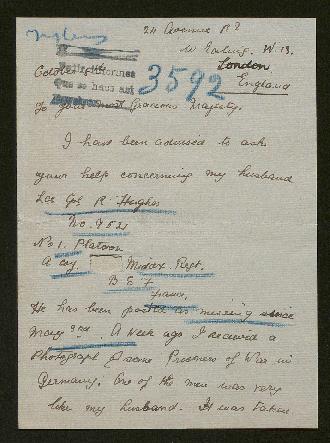 Ingles
24 Avenue Rd
W. Ealing. W 13.
London
England
October 18th
3592
To your Gracious Majesty.
I have been advised to ask
your help concerning my husband
Lce Cpl R Hughes
No.
No 1. Platoon
A Coy. Middx Regt.
B E F
France.
He has been posted as missing since
May 3rd. A week ago I received a
Photograph of some Prisoners of War in
Germany. One of the men was very
like my husband. It was taken